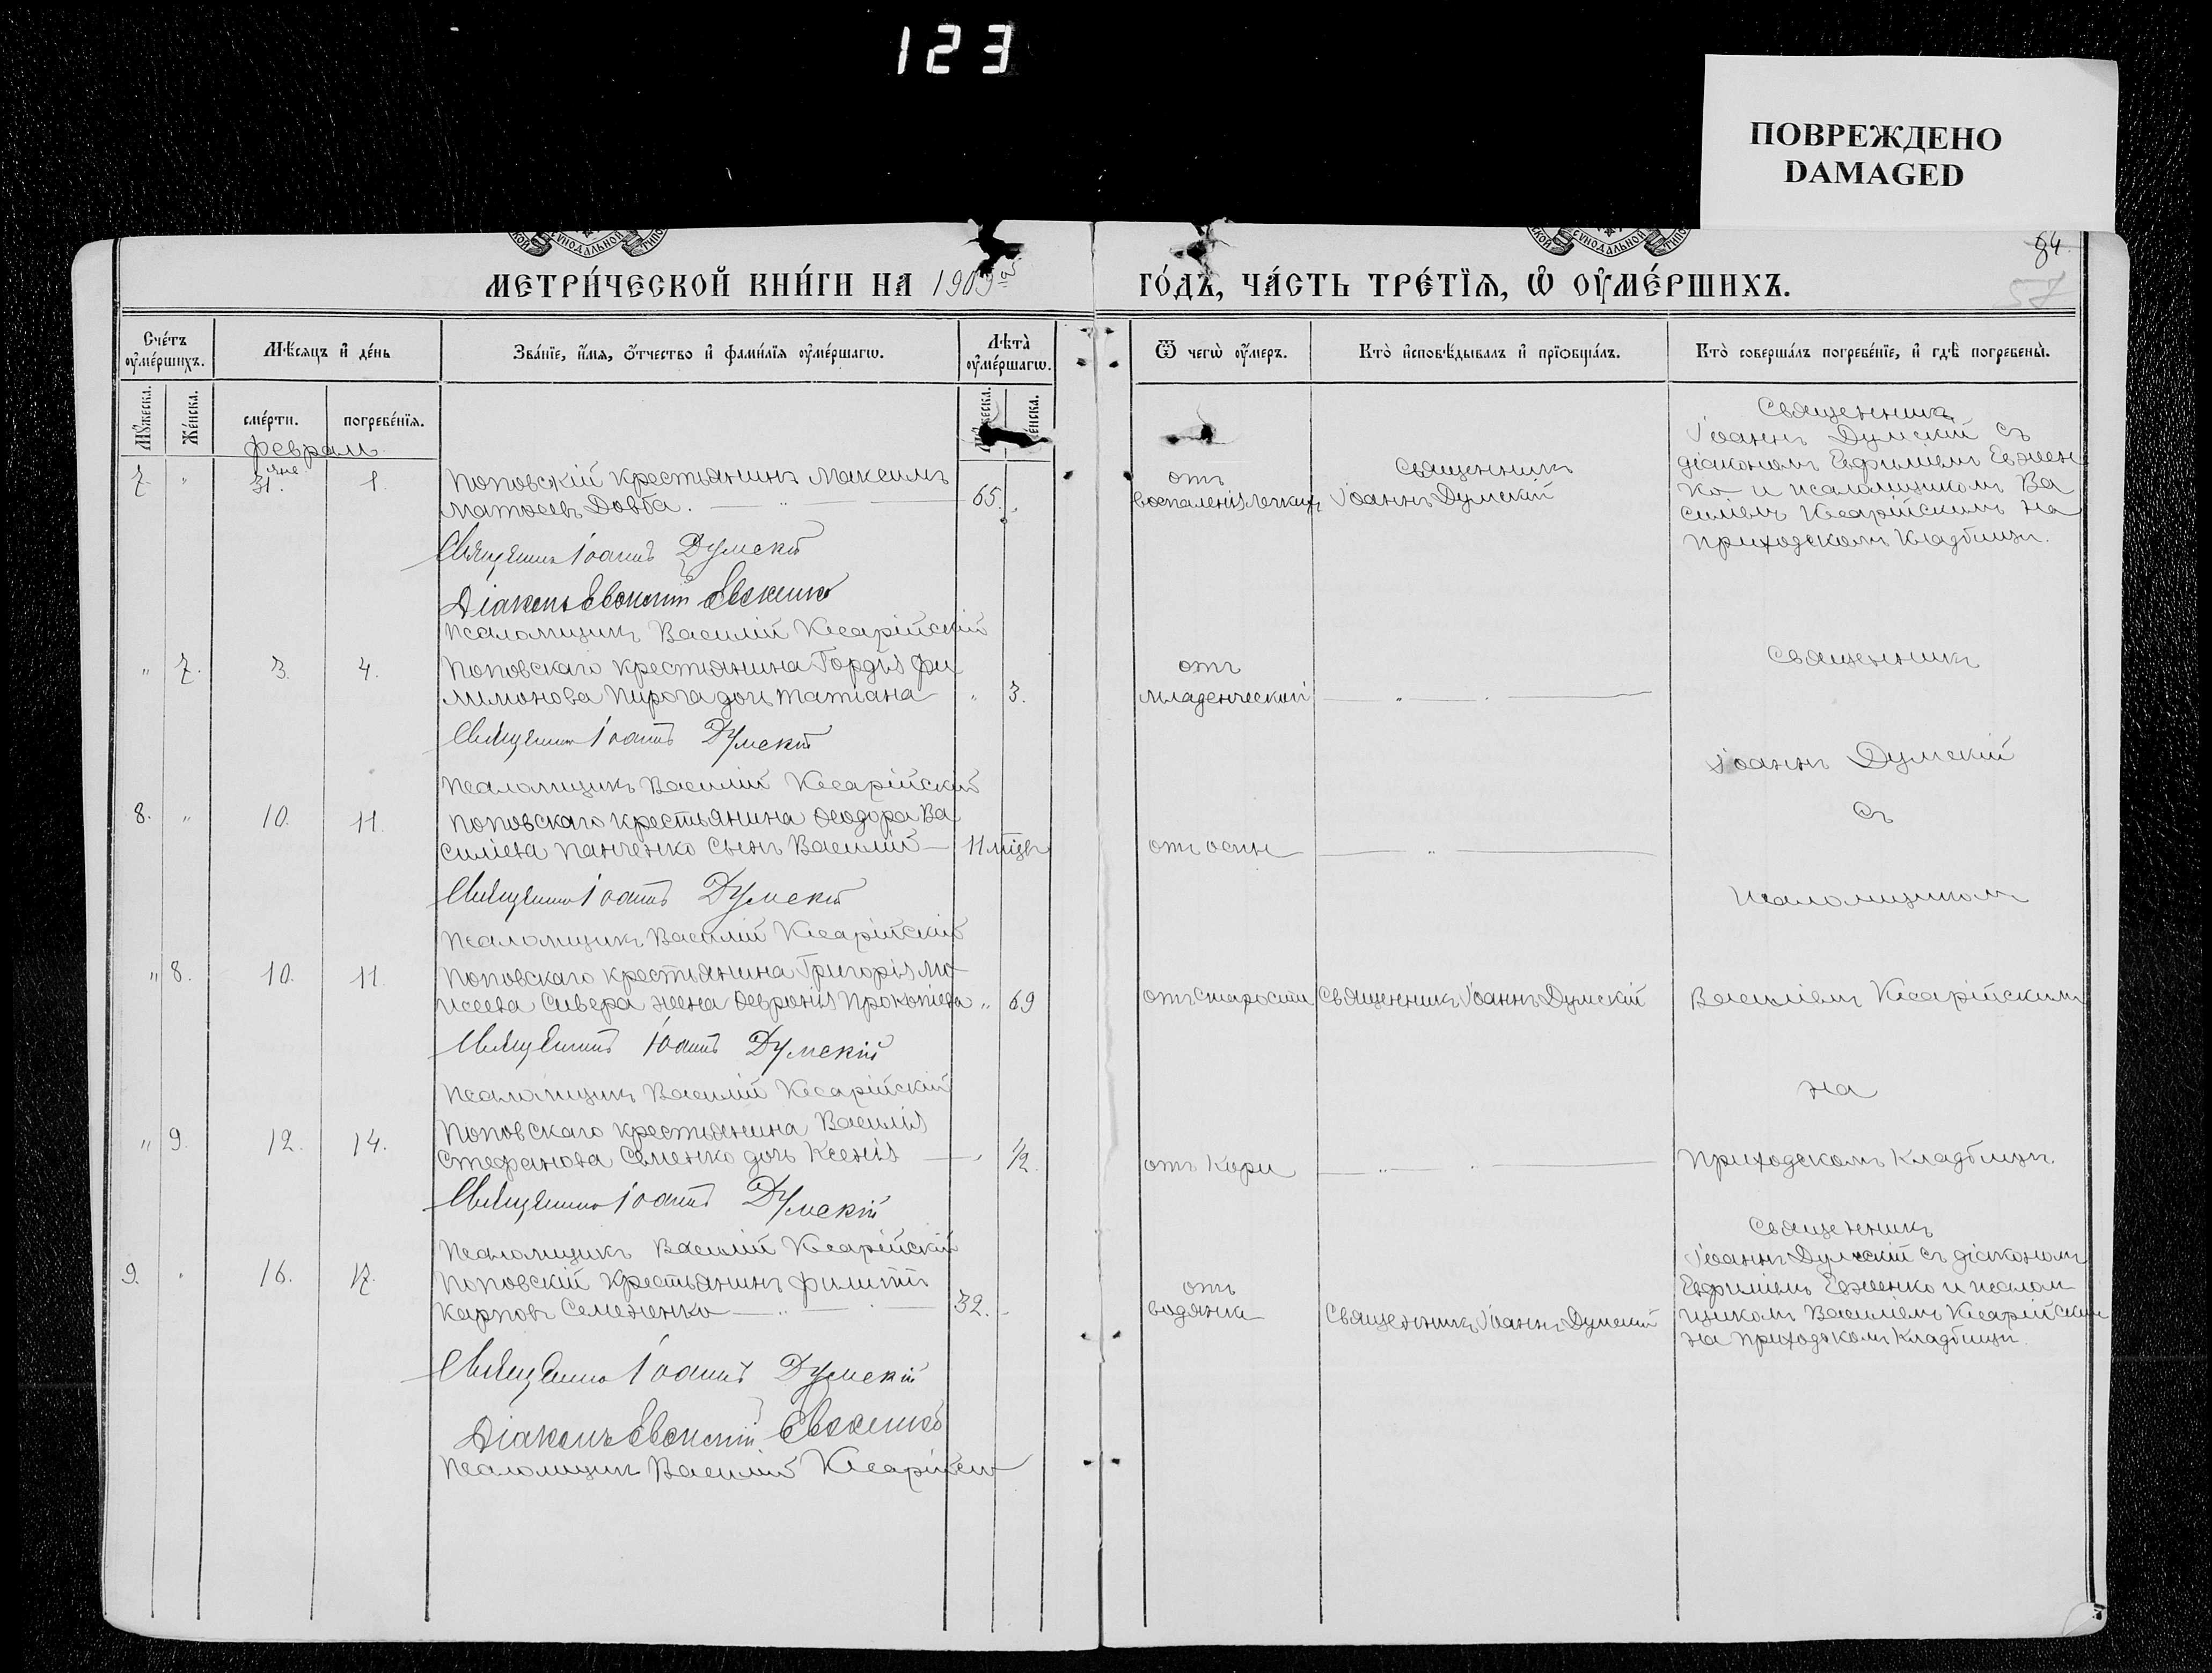 123
ПОВРЕЖДЕНО
DAMAGED
84.
57
МЕТРИ́ЧЕСКОЙ КНИ́ГИ НА 1909 ГО́ДЪ, ЧА́СТЬ ТРЕ́ТЇѦ, Ѡ҆ ОУ҆МЕ́РШИХЪ.
Сче́тъ оу҆ме́ршихъ.
Мѣ́сяцъ и҆ де́нь
Зва́нїе, и҆́мя, ѻ҆́тчество и҆ фами́лїя оу҆ме́ршагѡ.
Лѣта̀ оу҆ме́ршагѡ.
Ѿ чегѡ̀ оу҆́меръ.
Кто̀ и҆сповѣ́дывалъ и҆ прїѡбща́лъ.
Кто̀ соверша́лъ погребе́нїе, и҆ гдѣ̀ погребены̀.
Му́жеска.
Же́нска.
сме́рти.
погребе́нїя.
февраль
7. " янв 31. 1. Поповскій крестьянинъ Максимъ
Матѳеевъ Довба. 65. отъ воспаленія легкихъ
Священникъ Іоаннъ Думскій
Священникъ
Іоаннъ Думскій съ
діакономъ Евфиміемъ Евжен
ко и псаломщикомъ Ва
силіемъ Кесарійскимъ на
приходскомъ кладбищѣ.
Священникъ Іоаннъ Думскій
Діаконъ Евженко
Псаломщикъ Василій Кесарійскій
" 7. 3. 4. Поповскаго крестьянина Гордѣя Фи
лимонова Пирога дочь Татіана " 3. отъ младенческой
Священникъ
Священникъ Іоаннъ Думскій
Іоаннъ Думскій
Псаломщикъ Василій Кесарійскій
съ
8. " 10. 11. Поповскаго крестьянина Ѳеодора Ва
силіева Панченко сынъ Василій 11 мѣсц отъ оспы
Священникъ Іоаннъ Думскій
псаломщикомъ
Псаломщикъ Василій Кесарійскій
" 8. 10. 11. Поповскаго крестьянина Григорія Мо
исеева Сивера жена Ѳевронія Прокопіева " 69 отъ старости Священникъ Іоаннъ Думскій
Василіемъ Кесарійскимъ
Священникъ Іоаннъ Думскій
на
Псаломщикъ Василій Кесарійскій
" 9. 12. 14. Поповскаго крестьянина Василія
Стефанова Семенко дочь Ксенія 1/2. отъ кори
приходскомъ кладбищѣ.
Священникъ Іоаннъ Думскій
Псаломщикъ Василій Кесарійскій
9. " 16. 17. Поповскій крестьянинъ Филиппъ
Карповъ Семененко 32. отъ водянки Священникъ Іоаннъ Думскій
Священникъ
Іоаннъ Думскій съ діакономъ
Евфиміемъ Евженко и псалом
щикомъ Василіемъ Кесарійским
на приходскомъ кладбищѣ.
Священникъ Іоаннъ Думскій
Діаконъ Евженко
Псаломщикъ Василій Кесарійскій